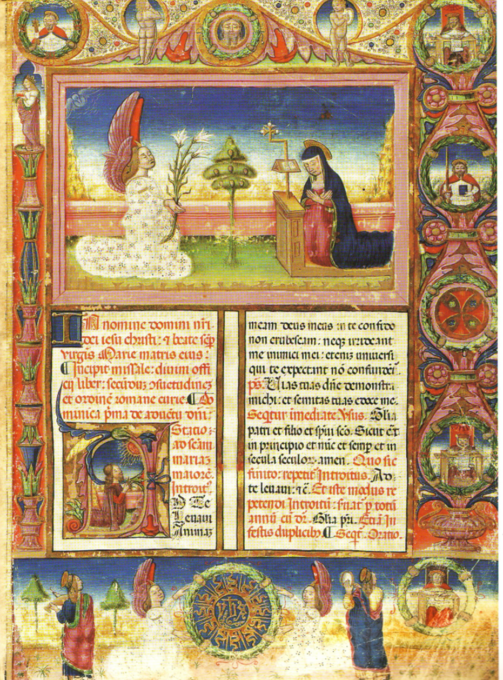 IN nomine domini nr̄i
dei iesu christi: ⁊ beate sēp
virgīs Marie matris eius:
¶ Incipit missale: diuini offi
cij liber: secūdȝ ɔsuetudines
et ordinē romane curie ¶ Do
minica p̄ma de aduētu dn̄i:
Statio:
ad scām
mariaz
maiorē
Introitꝰ
AD te
leuaui
animaz
meam deus meus in te confido
non erubescam: neqȝ irrideant
me inimici mei: etenīs uniuersi
qui te expectant nō confundēt
ps: Uias tuas dn̄e demonstra
michi: et semitas tuas edoce me.
Seq̄tur imediate Vsus. Glīa
patri et filio et spūi scō. Sicut erāt
in principio et nūc et semp et in
secula seculoꝝ. amen. Quo sic
finito: repetit̄ Introitus. Ad
te leuaui: ⁊c̄. Et iste modus re
petendi Introitū: fuat̄ p totū
annū cū dr̄. Glīa pri. Etiā In
festis duplicibꝰ ¶ Seqt̄. Oratio.